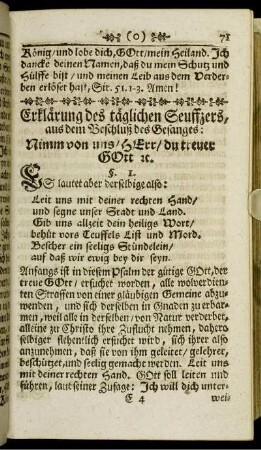 (0) 71
König/ und lobe dich, GOtt/ mein Heiland. Ich
dancke deinen Namen, daß du mein Schutz und
Hülffe bist/ und meinen Leib aus dem Verder-
ben erlöset hast/ Sir. 51. 1-3. Amen!
Erklärung des täglichen Seuffzers,
aus dem Beschluß des Gesanges:
Nimm von uns/ HErr/ du treuer
GOtt ꝛc.
§. 1.
ES lautet aber derselbige also:
Leit uns mit deiner rechten Hand/
und segne unser Stadt und Land.
Gib uns allzeit dein heiligs Wort/
behüt vors Teuffels List und Mord.
Bescher ein seeligs Stündelein/
auf daß wir ewig bey dir seyn.
Anfangs ist in diesem Psalm der gütige GOtt, der
treue GOtt/ ersuchet worden, alle wolverdien-
ten Straffen von einer gläubigen Gemeine abzu-
wenden, und sich derselben in Gnaden zu erbar-
men, weil alle in derselben/ von Natur verderbet,
alleine zu Christo ihre Zuflucht nehmen, dahero
selbiger flehentlich ersuchet wird, sich ihrer also
anzunehmen, daß sie von ihm geleitet/ gelehret,
beschützet, und seelig gemacht werden. Leit uns
mit deiner rechten Hand. GOtt soll leiten und
führen, laut seiner Zusage: Ich will dich unter-
E 4 wei-